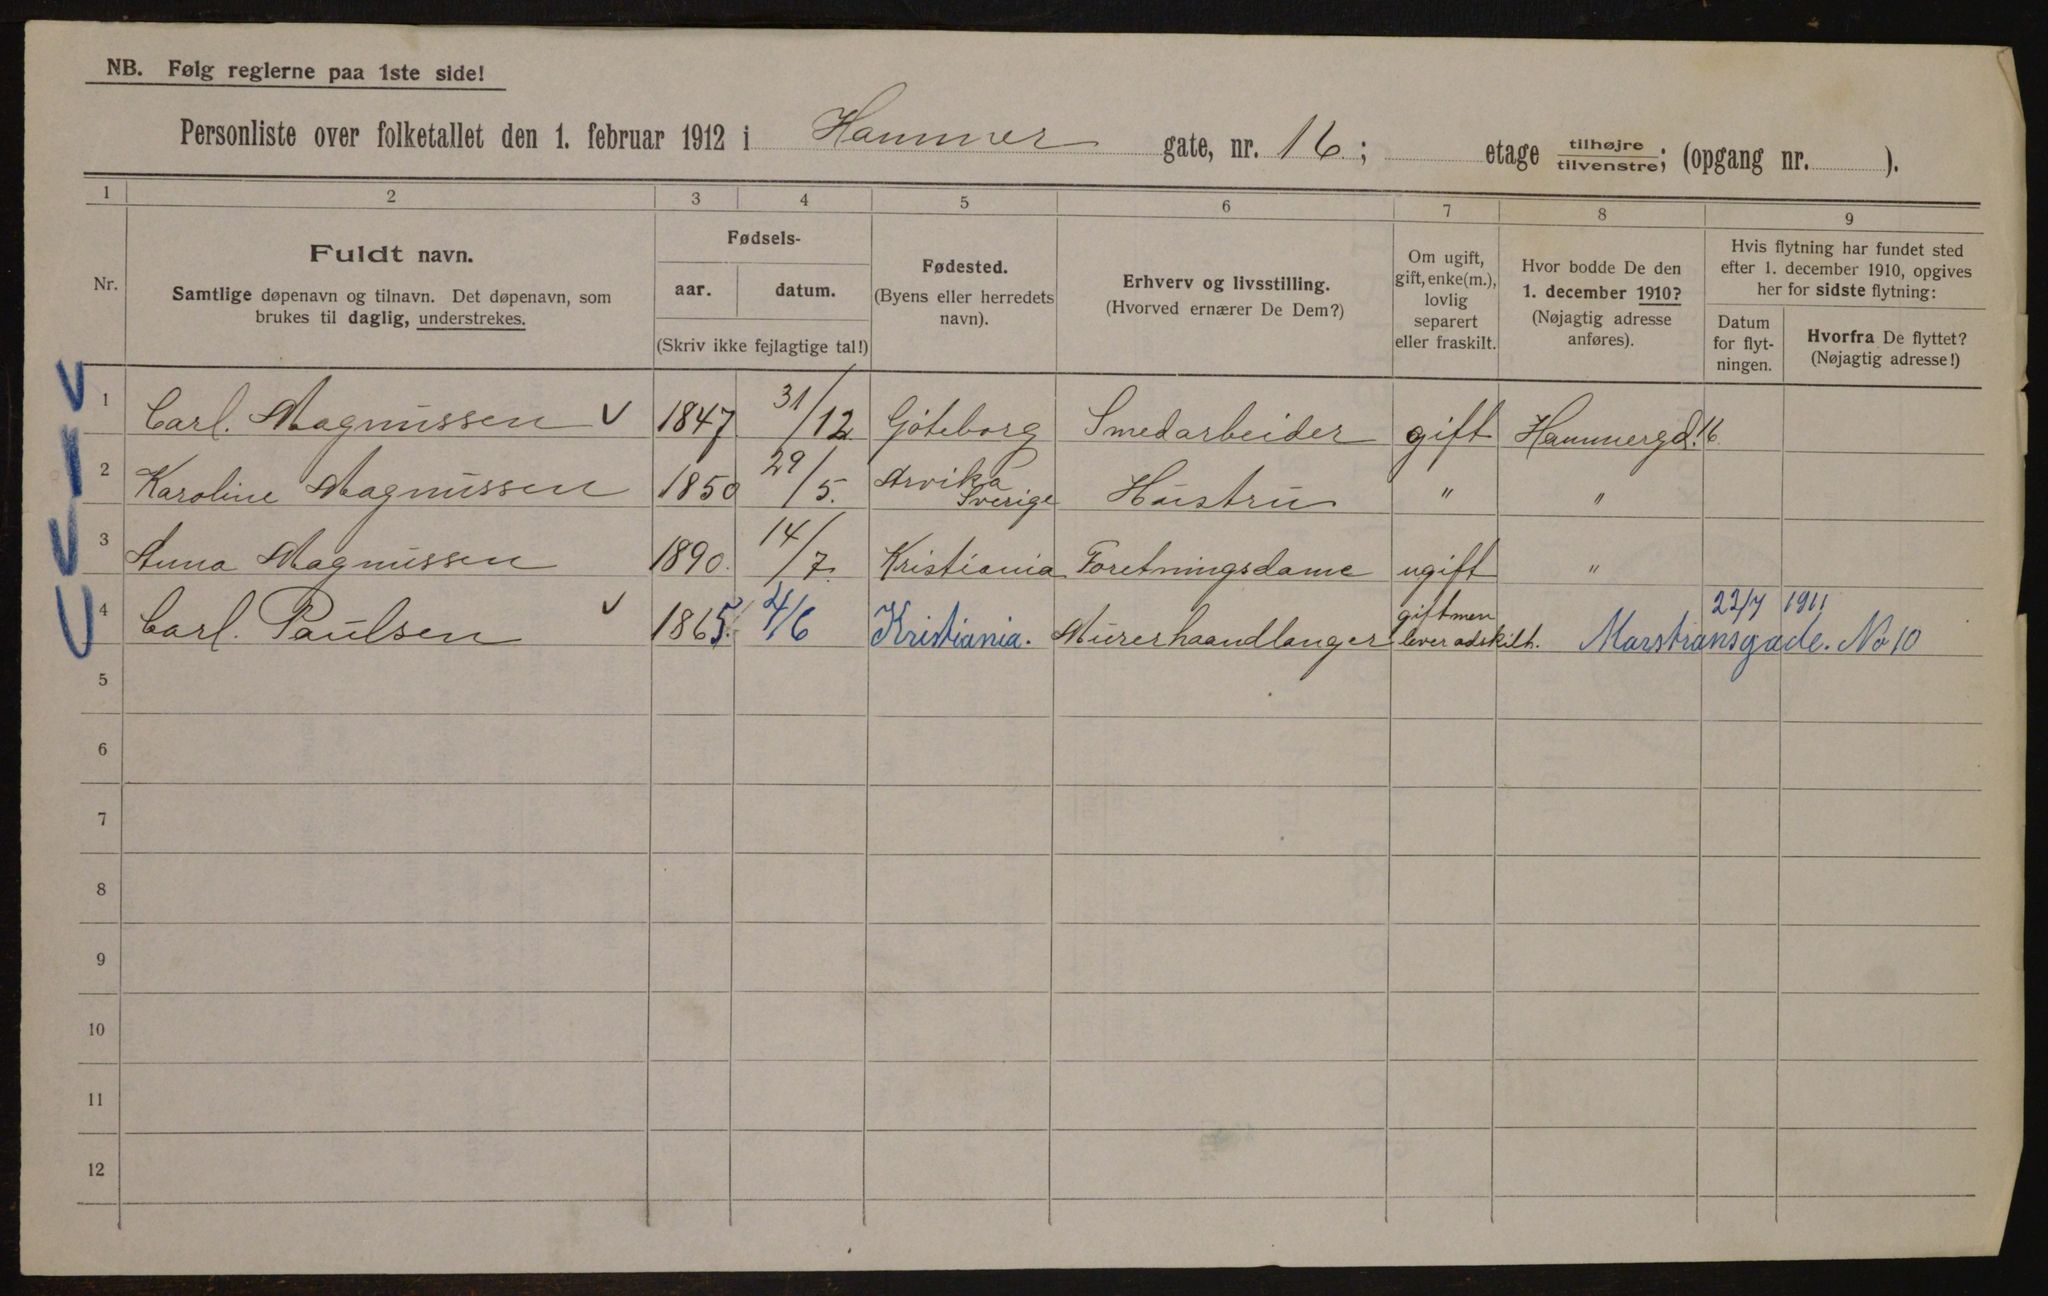 NB. Følg reglerne paa 1ste side!
Personliste over folketallet den 1. februar 1912 i Hammer gate, nr. 16; etage tilhøjre/tilvenstre; (opgang nr. ).
1 2 3 4 5 6 7 8 9
Nr.
Fuldt navn.
Samtlige døpenavn og tilnavn. Det døpenavn, som
brukes til daglig, understrekes.
Fødsels-
aar. datum.
(Skriv ikke fejlagtige tal!)
Fødested.
(Byens eller herredets
navn).
Erhverv og livsstilling.
(Hvorved ernærer De Dem?)
Om ugift,
gift, enke(m.),
lovlig
separert
eller fraskilt.
Hvor bodde De den
1. december 1910?
(Nøjagtig adresse
anføres).
Hvis flytning har fundet sted
efter 1. december 1910, opgives
her for sidste flytning:
Datum
for flyt-
ningen.
Hvorfra De flyttet?
(Nøjagtig adresse!)
1 Carl. Magnussen v 1847 31/12 Göteborg Smedarbeider gift Hammergd. 16
2 Karoline Magnussen 1850 29/5. Arvika Sverige Hustru " "
3 Anna Magnussen 1890. 14/7. Kristiania Foretningsdame ugift "
4 Carl. Paulsen v 1865. 4/6 Kristiania. Murerhaandlanger gift men lever adskilt. 22/7 1911 Marstransgade. No 10
5
6
7
8
9
10
11
12